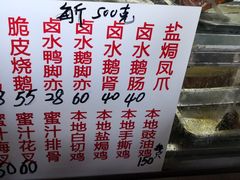 每斤 500克
盐焗凤爪
卤水鹅肠 40
卤水鹅肾 40
卤水鹅脚亦 60
卤水鸭脚亦 28
脆皮烧鹅 55
本地豉油鸡 150
本地手撕鸡
本地盐焗鸡
本地白切鸡
蜜汁花叉
蜜汁